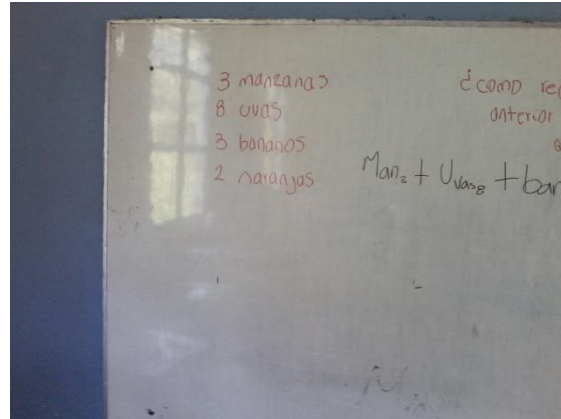 3 manzanas
8 uvas
3 bananos
2 naranjas
¿como
anterior
Man₃ + Uvas₈ + ban